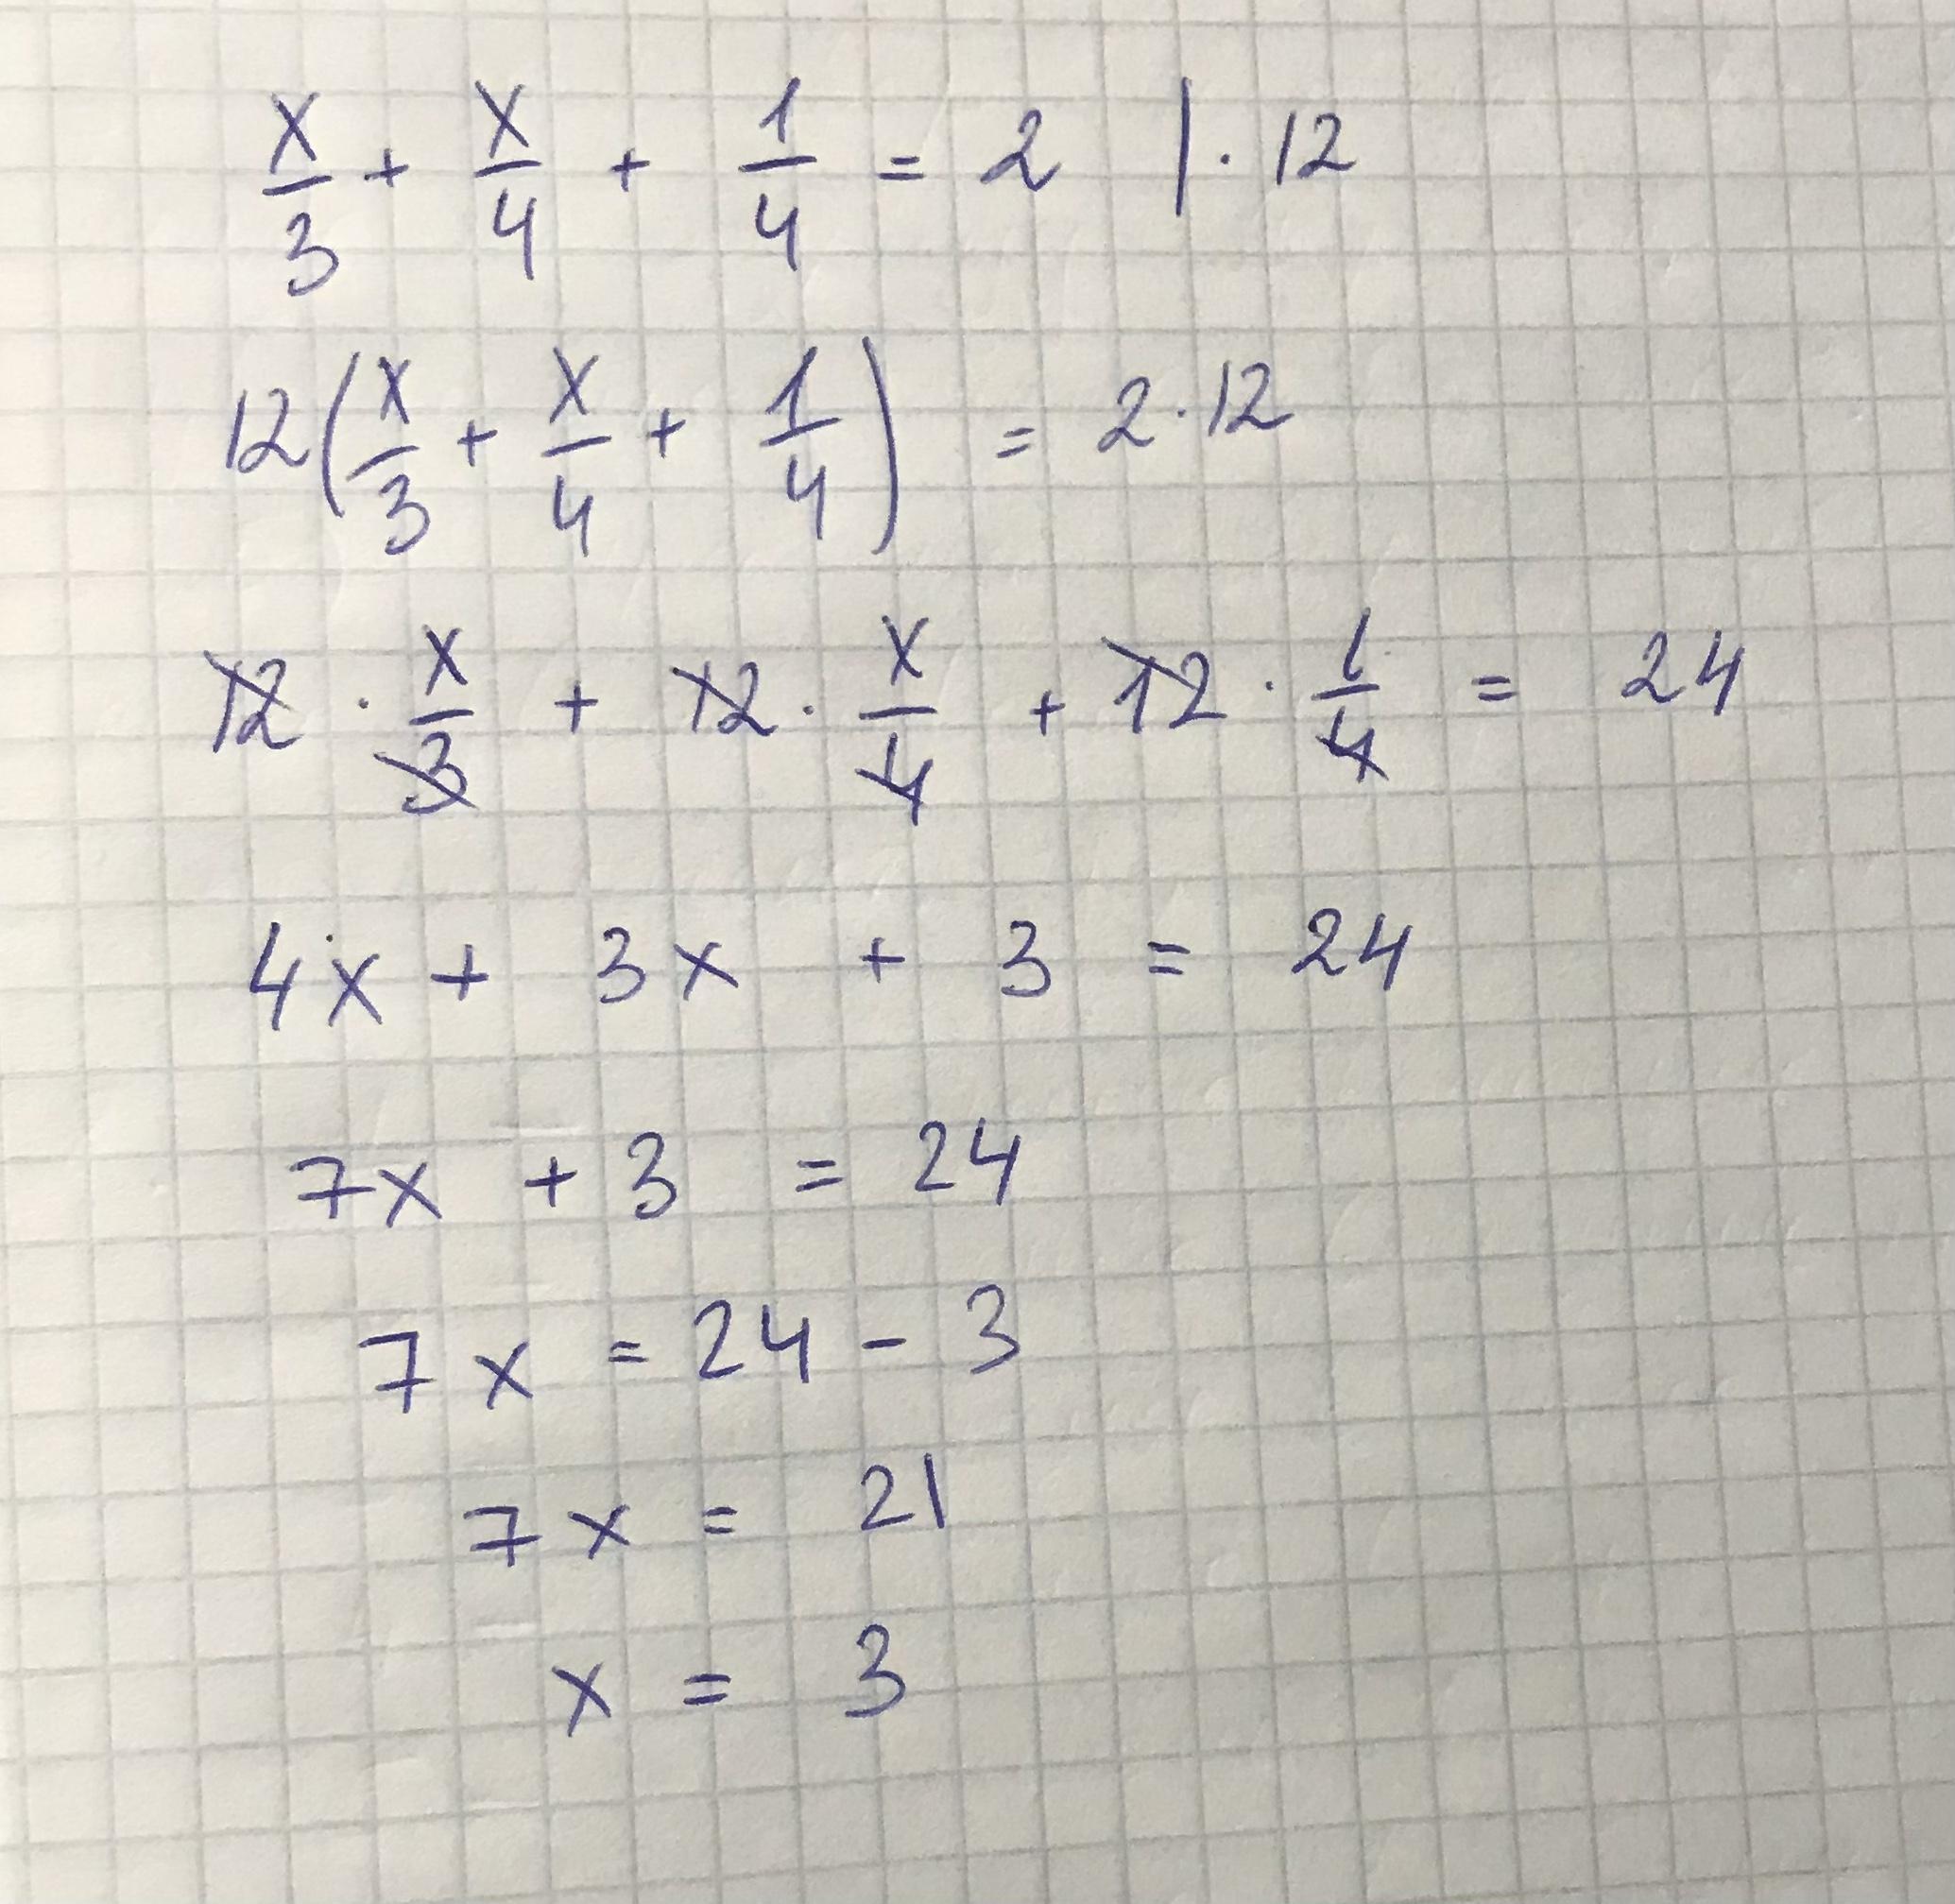 x/3 + x/4 + 1/4 = 2 | · 12
12(x/3 + x/4 + 1/4) = 2 · 12
12 · x/3 + 12 · x/4 + 12 · 1/4 = 24
4x + 3x + 3 = 24
7x + 3 = 24
7x = 24 - 3
7x = 21
x = 3